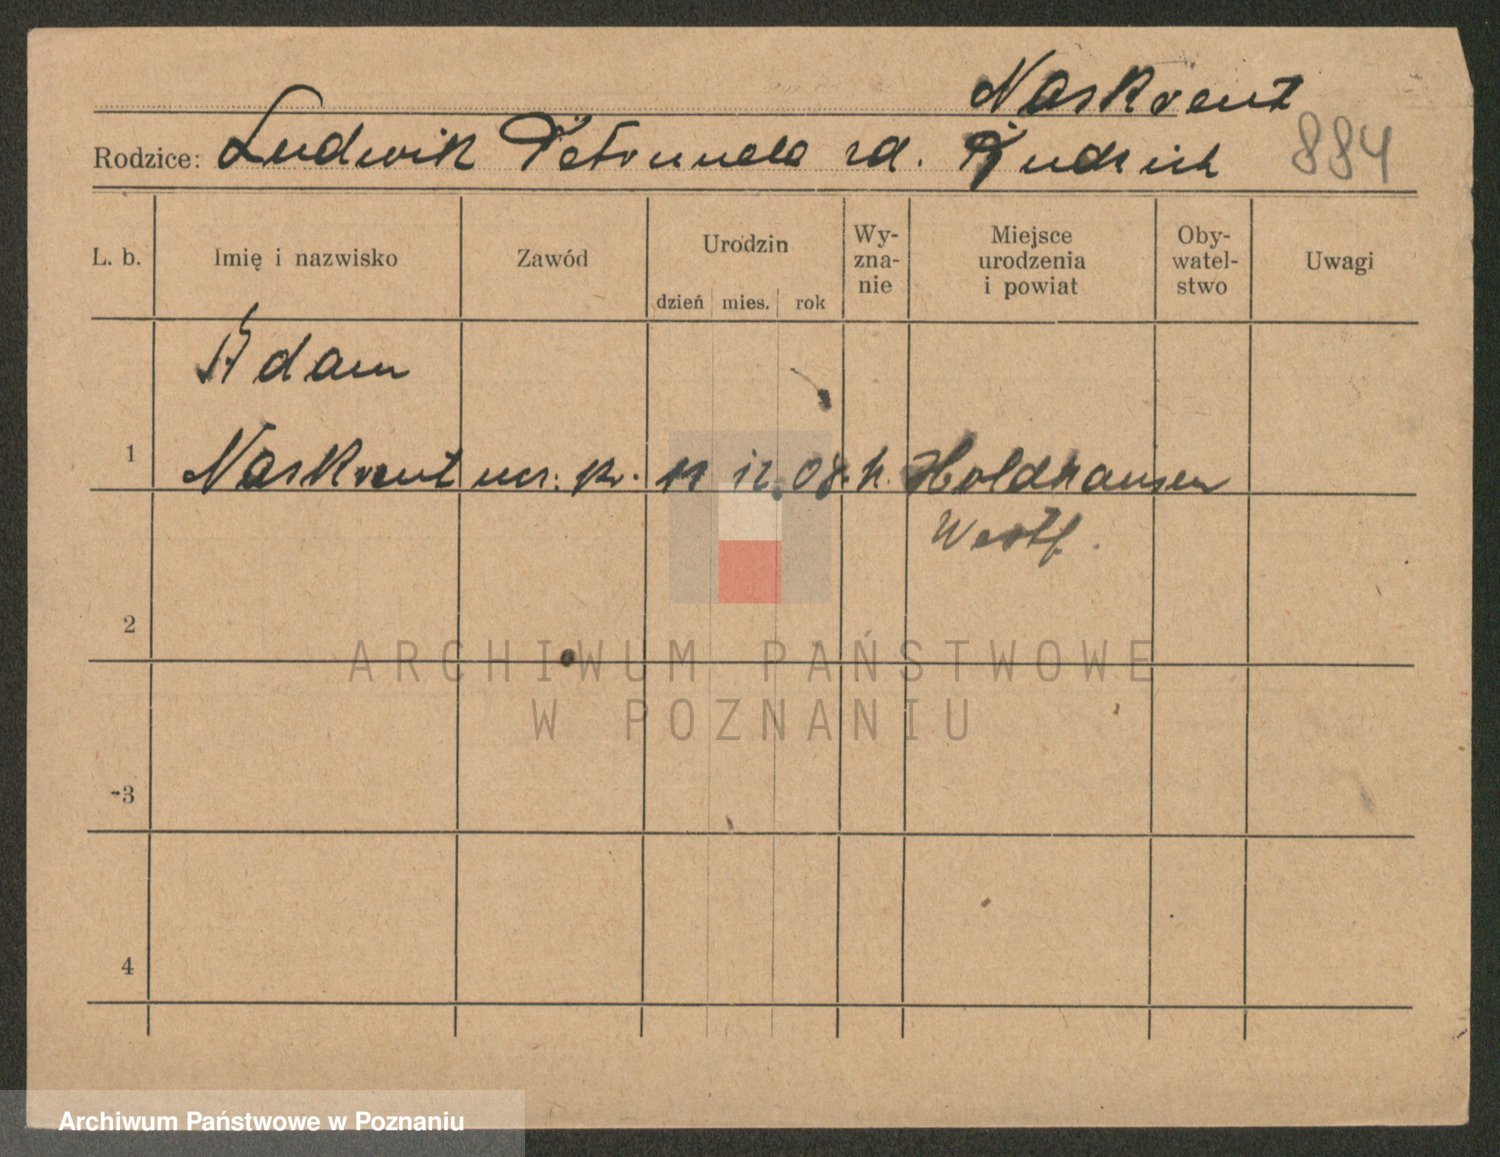 Naskrent
Rodzice: Ludwik Petronela zd. 884
L. b. Imię i nazwisko Zawód Urodzin dzień mies. rok Wy-zna-nie Miejsce urodzenia i powiat Oby-watel-stwo Uwagi
Adam
1 Naskrent 12. 08. k. Holdhausen
Westf.
2
3
4
ARCHIWUM PAŃSTWOWE
W POZNANIU
Archiwum Państwowe w Poznaniu